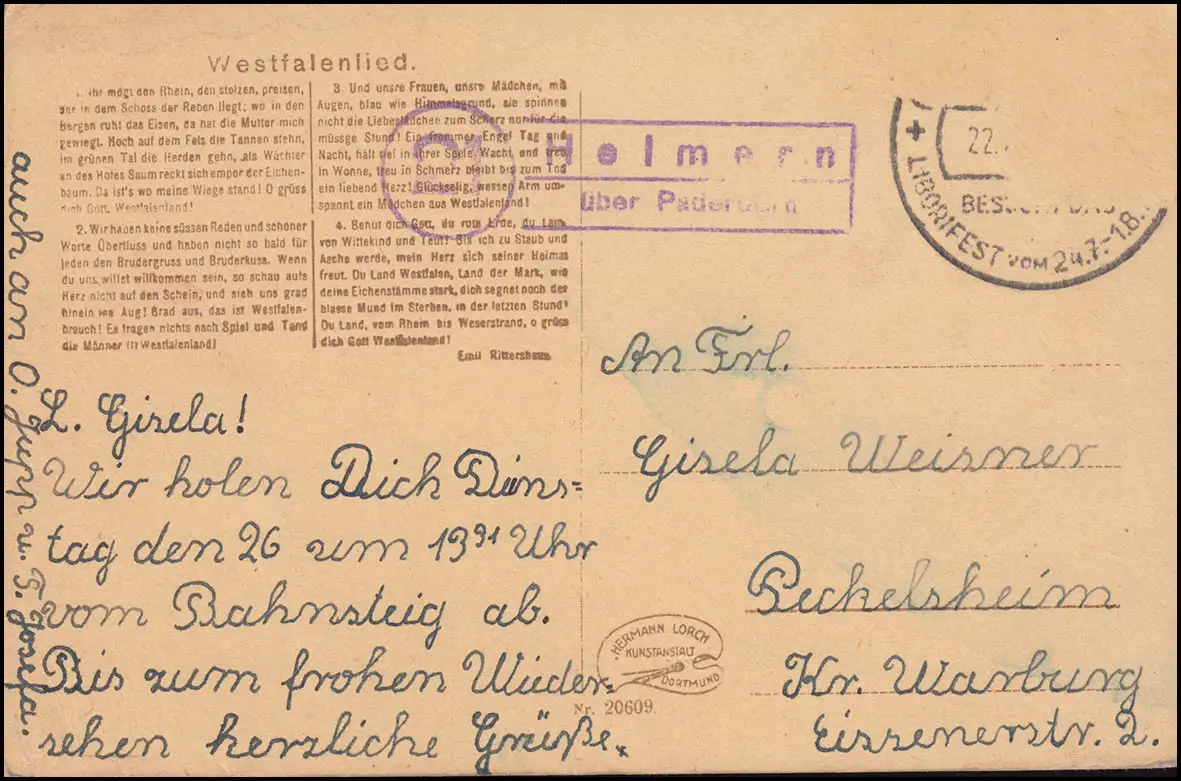 Westfalenlied.
1. Ihr mögt den Rhein, den stolzen, preisen,
der in dem Schoss der Reben liegt; wo in den
Bergen ruht das Eisen, da hat die Mutter mich
gewiegt. Hoch auf dem Fels die Tannen stehn,
im grünen Tal die Herden gehn, als Wächter
an des Hofes Saum reckt sich empor der Eichen-
baum. Da ist's wo meine Wiege stand! O grüss
dich Gott, Westfalenland!
2. Wir haben keine süssen Reden und schöner
Worte Überfluss und haben nicht so bald für
jeden den Brudergruss und Bruderkuss. Wenn
du uns willst willkommen sein, so schau aufs
Herz nicht auf den Schein, und sieh uns grad
hinein ins Aug! Grad aus, das ist Westfalen-
brauch! Es fragen nichts nach Spiel und Tand
die Männer in Westfalenland!
3. Und unsre Frauen, unsre Mädchen, mit
Augen, blau wie Himmelsgrund, sie spinnen
nicht die Liebesfädchen zum Scherz nur für die
müssge Stund! Ein frommer Engel Tag und
Nacht, hält tief in ihrer Seele Wacht, und treu
in Wonne, treu in Schmerz bleibt bis zum Tod
ein liebend Herz! Glückselig, wessen Arm um-
spannt ein Mädchen aus Westfalenland!
4. Behüt dich Gott, du rote Erde, du Land
von Wittekind und Teut! Bis ich zu Staub und
Asche werde, mein Herz sich seiner Heimat
freut. Du Land Westfalen, Land der Mark, wie
deine Eichenstämme stark, dich segnet noch der
blasse Mund im Sterben, in der letzten Stund!
Du Land, vom Rhein bis Weserstrand, o grüss
dich Gott Westfalenland!
Emil Rittershaus
21
Helmern
über Paderborn
22.
BESUCHT DAS
+ LIBORIFEST VOM 24.7.-1.8.
L. Gisela!
Wir holen Dich Diens=
tag den 26 um 13⁹¹ Uhr
vom Bahnsteig ab.
Bis zum frohen Wieder-
sehen herzliche Grüße.
auch an O. Jupp u. T. Josefa.
An Frl.
Gisela Weisner
Peckelsheim
Kr. Warburg
Eissenerstr. 2.
HERMANN LORCH
KUNSTANSTALT
DORTMUND
Nr. 20609.